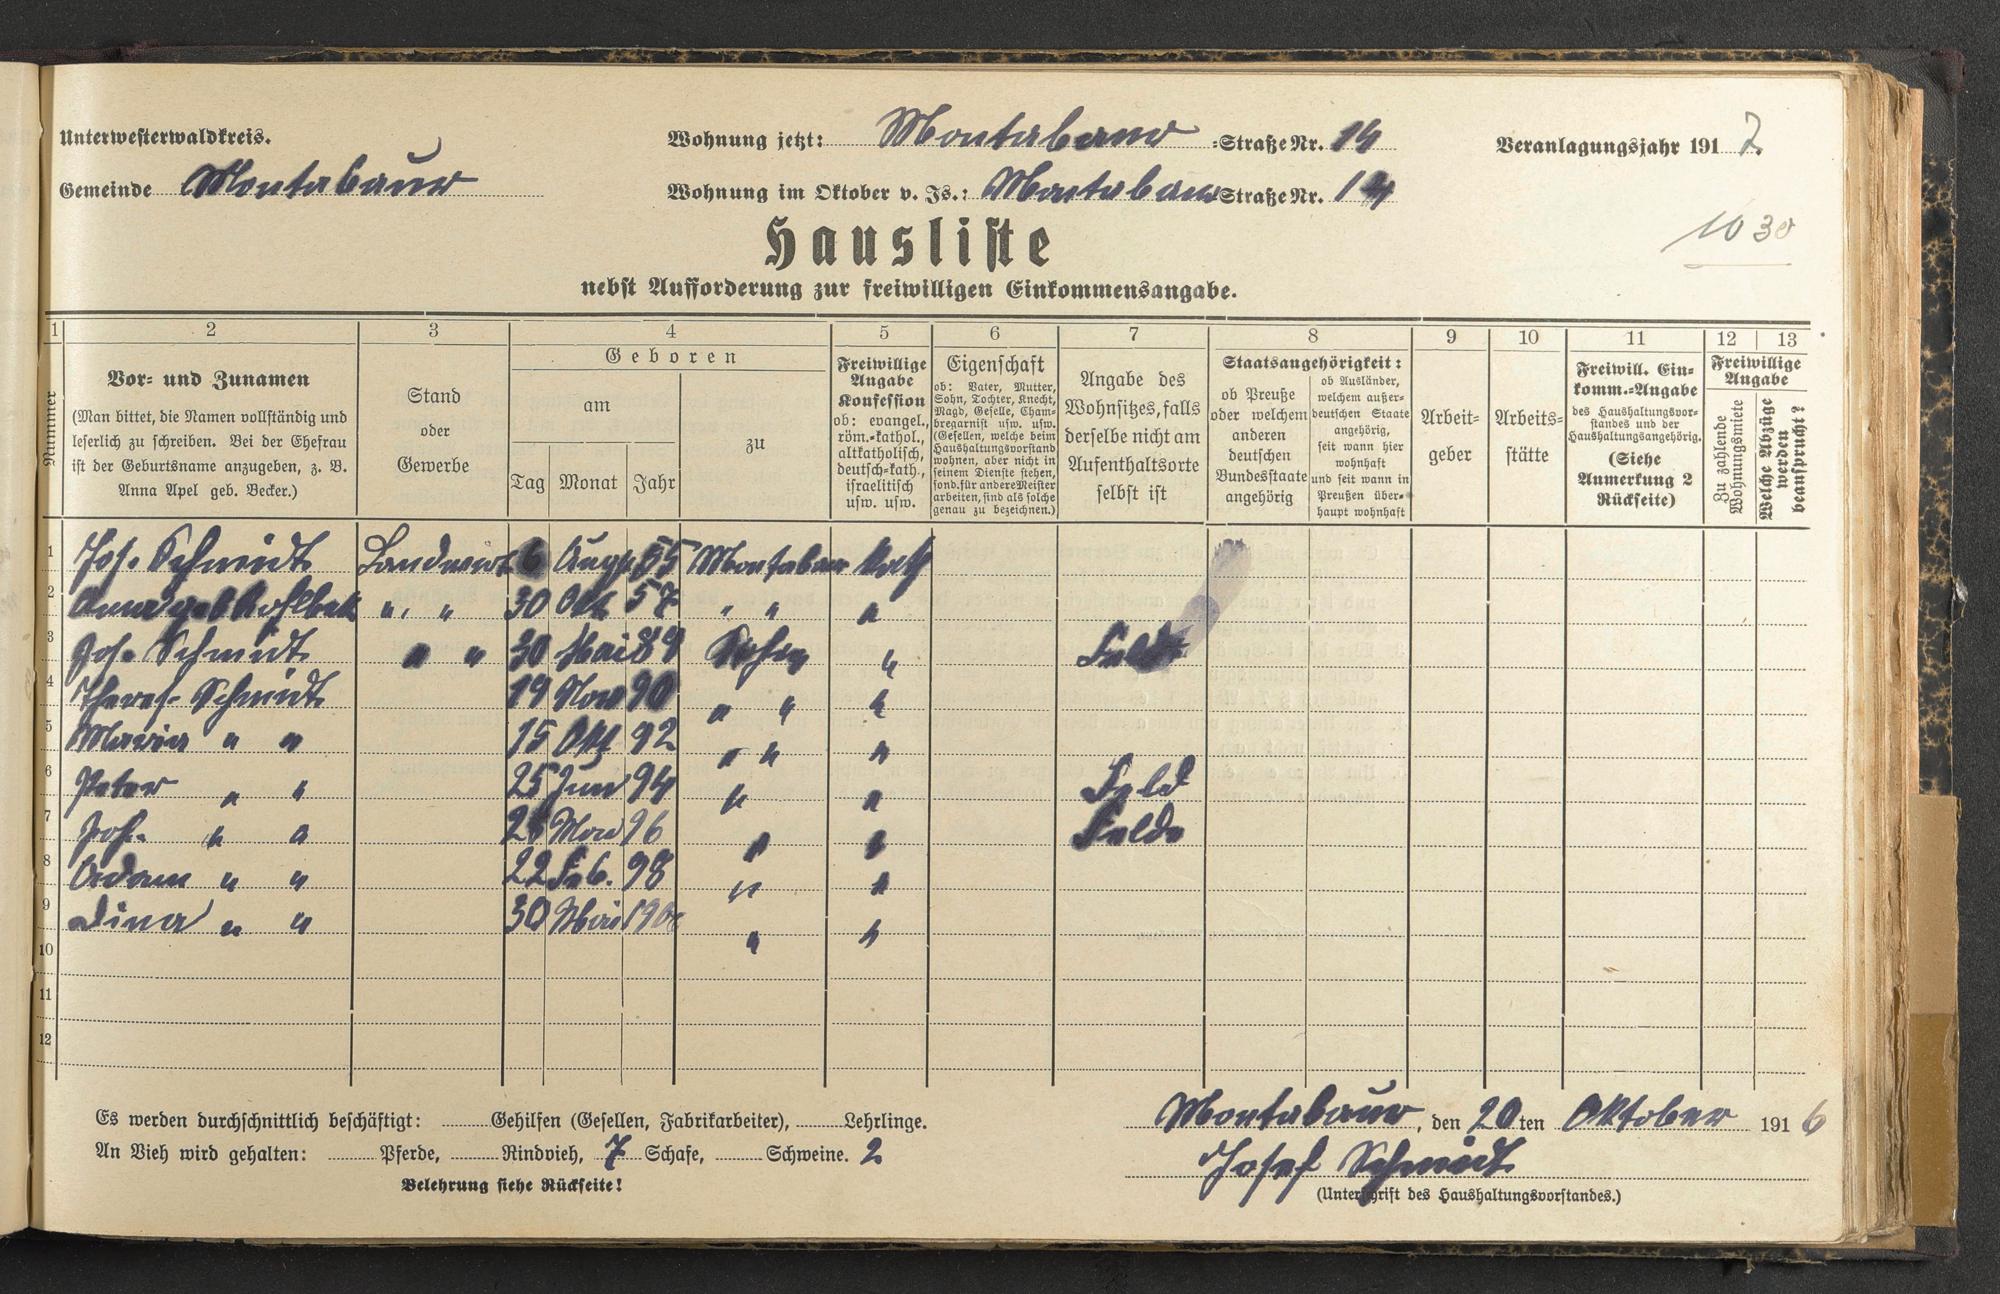 Unterwesterwaldkreis.
Gemeinde Montabaur
Wohnung jetzt: Montabaur :Straße Nr. 14
Wohnung im Oktober v. Js.: Montabaur Straße Nr. 14
Veranlagungsjahr 1917
1030
Hausliste
nebst Aufforderung zur freiwilligen Einkommensangabe.
1 2 3 4 5 6 7 8 9 10 11 12 13
Nummer
Vor- und Zunamen
(Man bittet, die Namen vollständig und
leserlich zu schreiben. Bei der Ehefrau
ist der Geburtsname anzugeben, z. B.
Anna Apel geb. Becker.)
Stand
oder
Gewerbe
Geboren
am
Tag Monat Jahr
zu
Freiwillige
Angabe
Konfession
ob: evangel.,
röm.-kathol.,
altkatholisch,
deutsch-kath.,
israelitisch
usw. usw.
Eigenschaft
ob: Vater, Mutter,
Sohn, Tochter, Knecht,
Magd, Geselle, Cham-
bregarnist usw. usw.
(Gesellen, welche beim
Haushaltungsvorstand
wohnen, aber nicht in
seinem Dienste stehen,
sond. für andere Meister
arbeiten, sind als solche
genau zu bezeichnen.)
Angabe des
Wohnsitzes, falls
derselbe nicht am
Aufenthaltsorte
selbst ist
Staatsangehörigkeit:
ob Preuße
oder welchem
anderen
deutschen
Bundesstaate
angehörig
ob Ausländer,
welchem außer-
deutschen Staate
angehörig,
seit wann hier
wohnhaft
und seit wann in
Preußen über-
haupt wohnhaft
Arbeit-
geber
Arbeits-
stätte
Freiwill. Ein-
komm.-Angabe
des Haushaltungsvor-
standes und der
Haushaltungsangehörig.
(Siehe
Anmerkung 2
Rückseite)
Freiwillige
Angabe
Zu zahlende
Wohnungsmiete
Welche Abzüge
werden
beansprucht?
1 Jos. Schmidt Landwirt 6 Aug 55 Montabaur kath
2 Anna geb. " " 30 Okt 57 " " "
3 Joh. Schmidt " " 30 Mai 89 " Felde
4 Theres. Schmidt 19 Nov 90 " " "
5 Maria " " 15 Okt 92 " " "
6 Peter " " 25 Jun 94 " " Feld
7 Jos. " " 96 " " Felde
8 Adam " " 22 Feb. 98 " "
9 Dina " " 30 Mai " "
10
11
12
Es werden durchschnittlich beschäftigt: Gehilfen (Gesellen, Fabrikarbeiter), Lehrlinge.
An Vieh wird gehalten: Pferde, Rindvieh, 7 Schafe, Schweine. 2
Belehrung siehe Rückseite!
Montabaur, den 20ten Oktober 1916
Josef Schmidt
(Unterschrift des Haushaltungsvorstandes.)